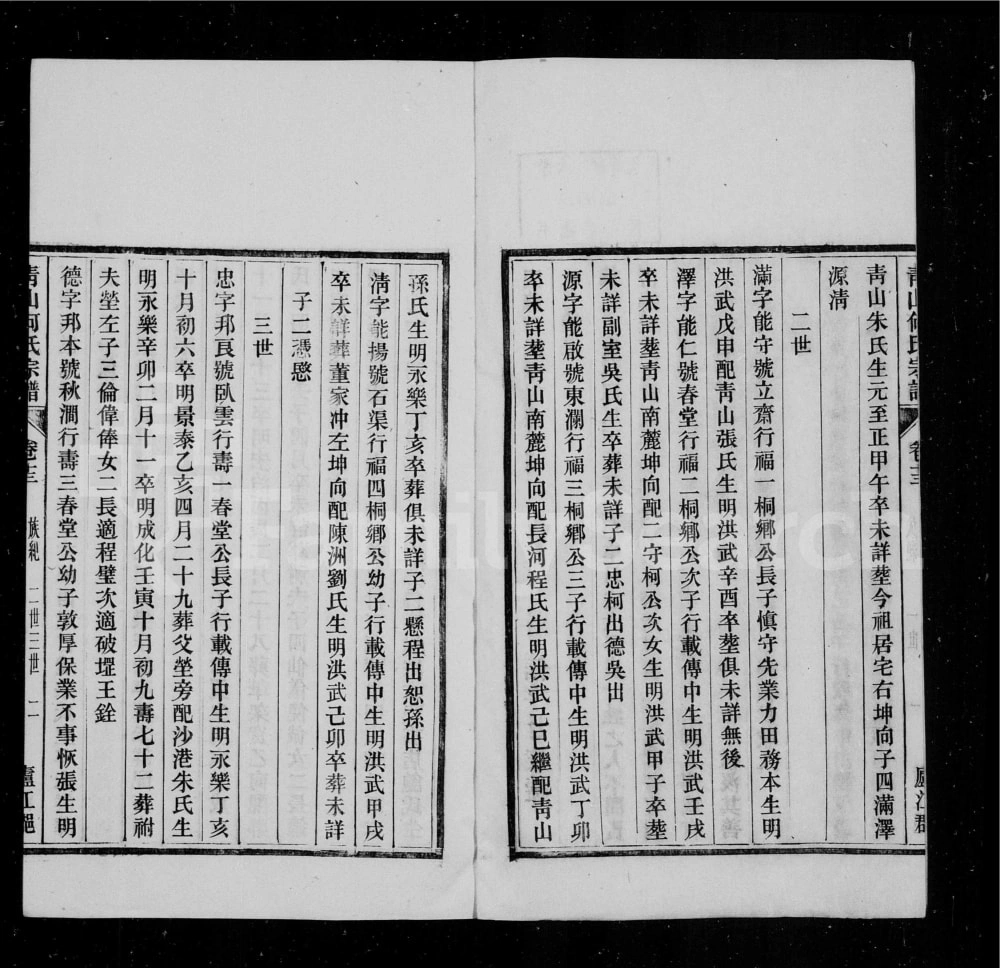 青山何氏宗譜 卷十三 廬江郡
青山朱氏生元至正甲午卒未詳塟今祖居宅右坤向子四滿澤
源清
二世
滿字能守號立齋行福一桐鄉公長子慎守先業力田務本生明
洪武戊申配青山張氏生明洪武辛酉卒塟俱未詳無後
澤字能仁號春堂行福二桐鄉公次子行載傳中生明洪武壬戌
卒未詳塟青山南麓坤向配二守柯公次女生明洪武甲子卒塟
未詳副室吳氏生卒葬未詳子二忠柯出德吳出
源字能啟號東瀾行福三桐鄉公三子行載傳中生明洪武丁卯
卒未詳塟青山南麓坤向配長河程氏生明洪武己巳繼配青山
孫氏生明永樂丁亥卒葬俱未詳子二懸程出恕孫出
清字能揚號石渠行福四桐鄉公幼子行載傳中生明洪武甲戌
卒未詳葬董家冲左坤向配陳洲劉氏生明洪武己卯卒葬未詳
子二憑慇
三世
忠字邦良號臥雲行壽一春堂公長子行載傳中生明永樂丁亥
十月初六卒明景泰乙亥四月二十九葬父塋旁配沙港朱氏生
明永樂辛卯二月十一卒明成化壬寅十月初九壽七十二葬祔
夫塋左子三倫偉俸女二長適程璧次適破堽王銓
德字邦本號秋澗行壽三春堂公幼子敦厚保業不事恢張生明
青山何氏宗譜 卷十三 族總 二世三世 二 廬江郡